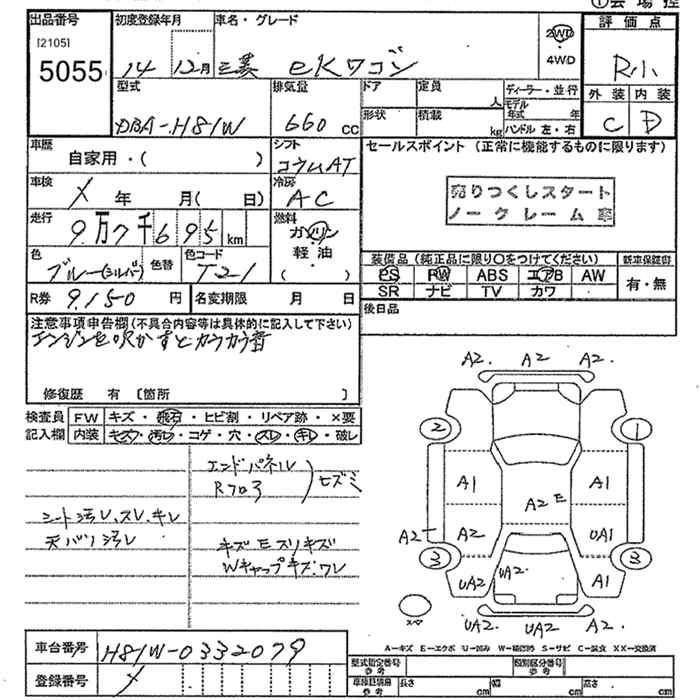 ①会場控
出品番号
[2105]
5055
初度登録年月
14 12月
車名・グレード
三菱 eKワゴン
2WD
・
4WD
評価点
R小
外装 内装
C D
型式
DBA-H81W
排気量
660 cc
ドア
定員
人
形状
積載
kg
ディーラー・並行
モデル年式 年
ハンドル 左・右
車歴
自家用・( )
シフト
コラムAT
車検
X 年 月( 日)
冷房
AC
走行
9万7千695km
燃料
ガソリン
軽油
( )
色
ブルー(シルバ)
色替
色コード
T21
R券 9,150 円
名変期限 月 日
セールスポイント (正常に機能するものに限ります)
売りつくしスタート
ノークレーム車
装備品 (純正品に限り○をつけてください)
PS PW ABS エアB AW
SR ナビ TV カワ
新車保証書
有・無
後日品
注意事項申告欄(不具合内容等は具体的に記入して下さい)
エンジンを吹かすとカラカラ音
修復歴 有 〔箇所 〕
検査員記入欄
FW キズ・飛石・ヒビ割・リペア跡・×要
内装 キズ・汚レ・コゲ・穴・スレ・キレ・破レ
エンドパネル
Rフロ3
ヒズミ
シート汚レ、スレ、キレ
天バリ汚レ
キズ E スリキズ
Wキャップキズ、ワレ
A2. A2 A2.
2 1
A1 A1
A2 E
A2 A2 UA1
3 3
UA2 UA2 A1
スペ
UA2 UA2 A2.
A-キズ E-エクボ U-凹み W-補修跡 S-サビ C-腐食 XX-交換済
車台番号 H81W-0332079
登録番号 X
型式指定番号 参考
類別区分番号 参考
車検証情報 参考
長さ cm 幅 cm 高さ cm